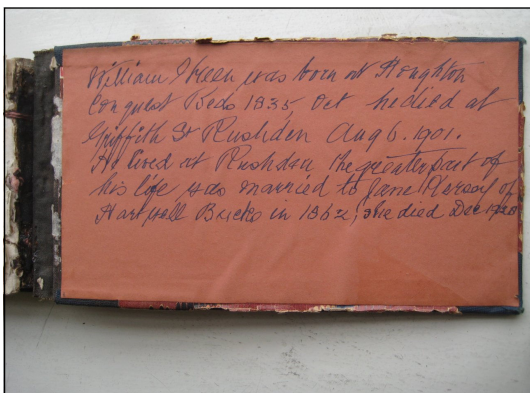 William Green was born at Houghton
Conquest Beds 1835 Oct he died at
Griffith St Rushden Aug 6. 1901.
He lived at Rushden the greater part of
his life was married to Jane of
Hartwell Bucks in 1862, she died Dec